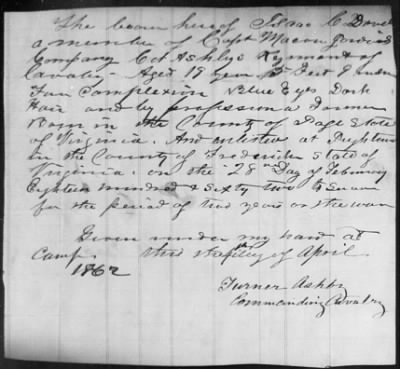 The bearer hereof Isaac C Dovel
a member of Capt Macon Jordan's
Company Col Ashby's Regiment of
Cavalry - Aged 19 years Feet
Fair Complexion Blue Eyes Dark
Hair and by profession a Farmer
Born in the County of Page State
of Virginia. And enlisted at
in the County of Frederick State of
Virginia on the 28 Day of February
Eighteen hundred & Sixty two to Serve
for the period of two years or the war
Given under my hand at
Camp this day of April
1862
Turner Ashby
Commanding Cavalry